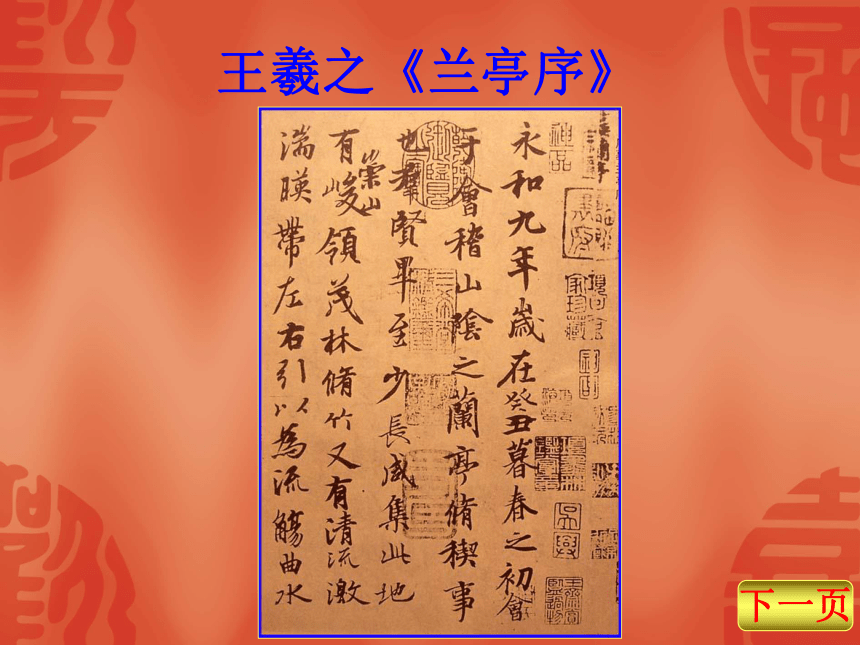 王羲之《兰亭序》
永和九年歲在癸丑暮春之初會
于會稽山陰之蘭亭脩稧事
也羣賢畢至少長咸集此地
有崇山峻領茂林脩竹又有清流激
湍暎帶左右引以為流觴曲水
神品
下一页